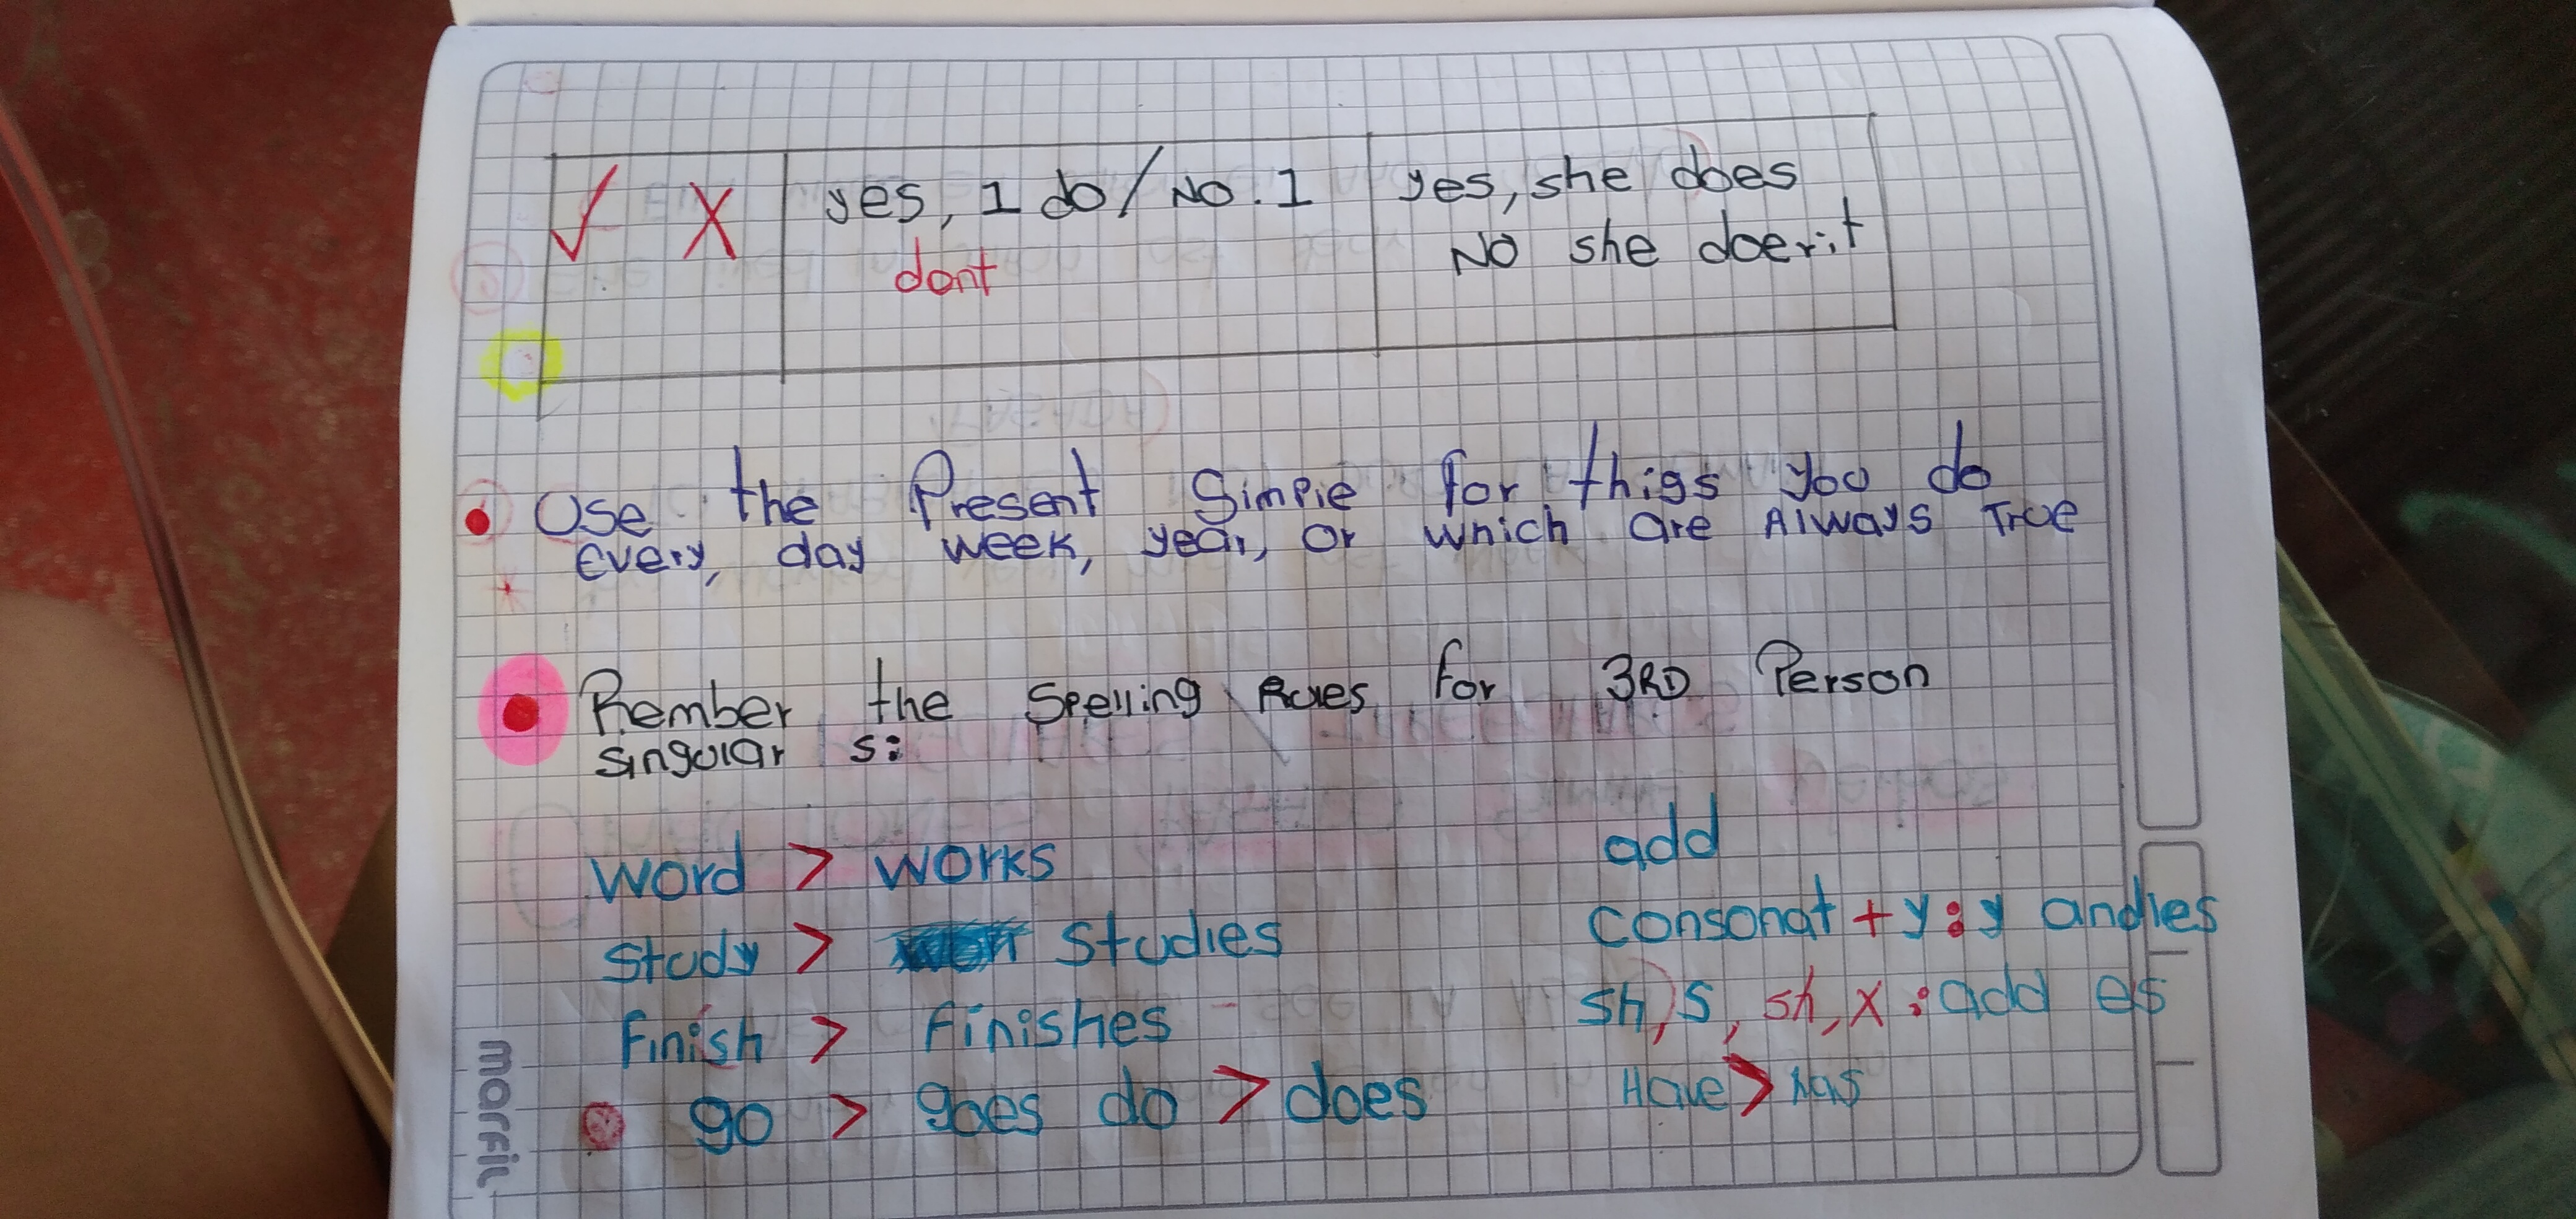 ✓ X yes, I do / No. I yes, she does
dont NO she doerit
Use the Present Simple for thigs you do
every, day week, year, or which are Always True
Rember the Spelling Rules for 3RD Person
singular s:
word > works add
Study > Studies Consonat + y : y and ies
Finish > Finishes sh, s, sh, x : add es
go > goes do > does Have > has
marfil